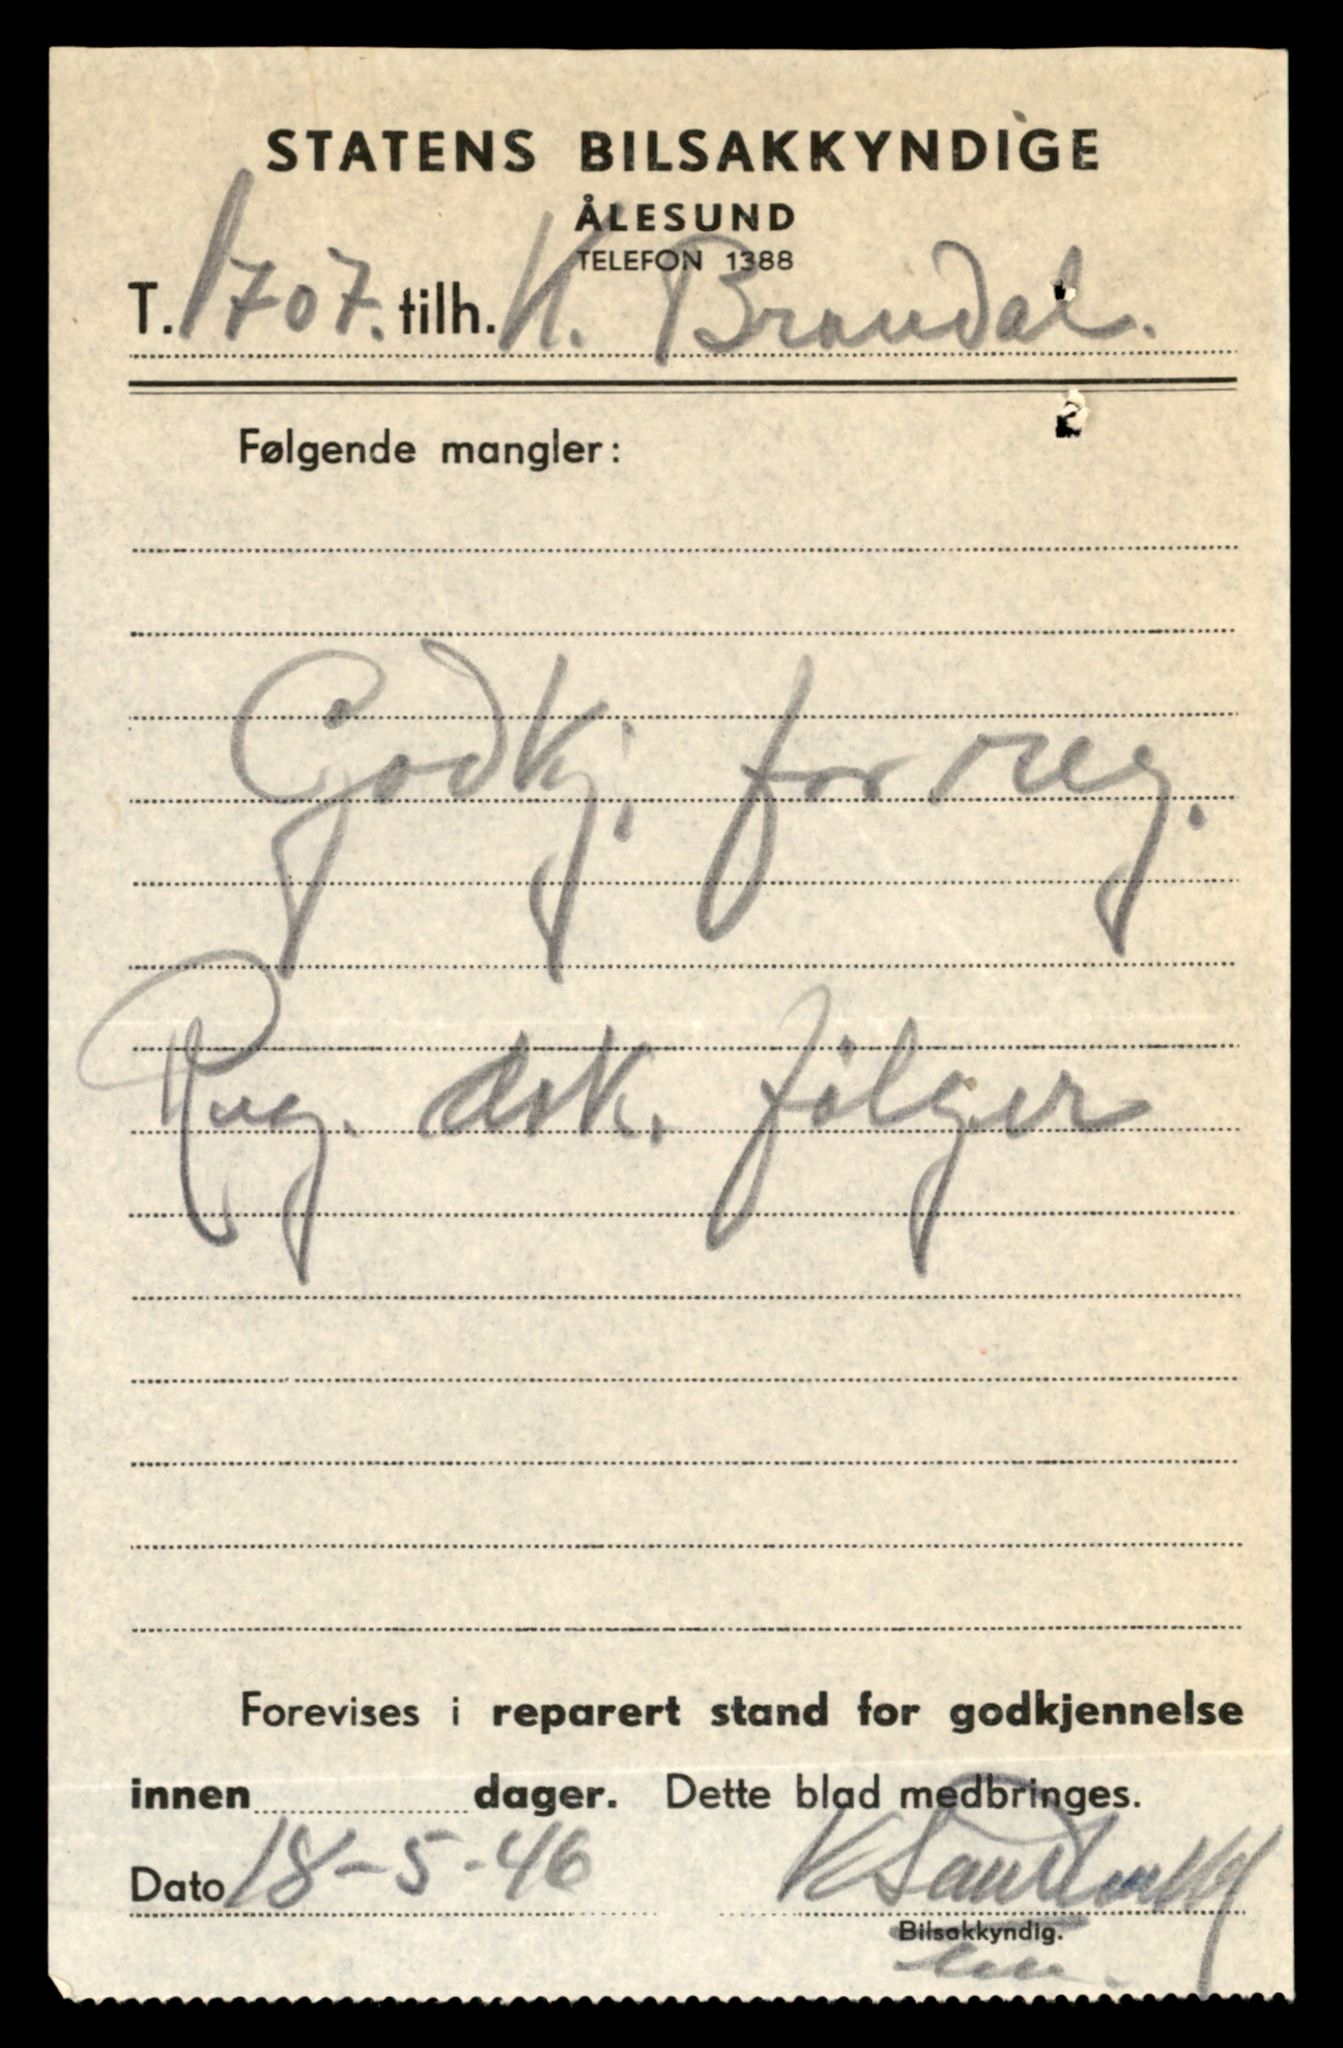 STATENS BILSAKKYNDIGE
ÅLESUND
TELEFON 1388
T. 1707. tilh. K. Brandal.
Følgende mangler:
Godkj. for reg.
Reg. dok. følger
Forevises i reparert stand for godkjennelse
innen dager. Dette blad medbringes.
Dato 18-5-46
Bilsakkyndig.